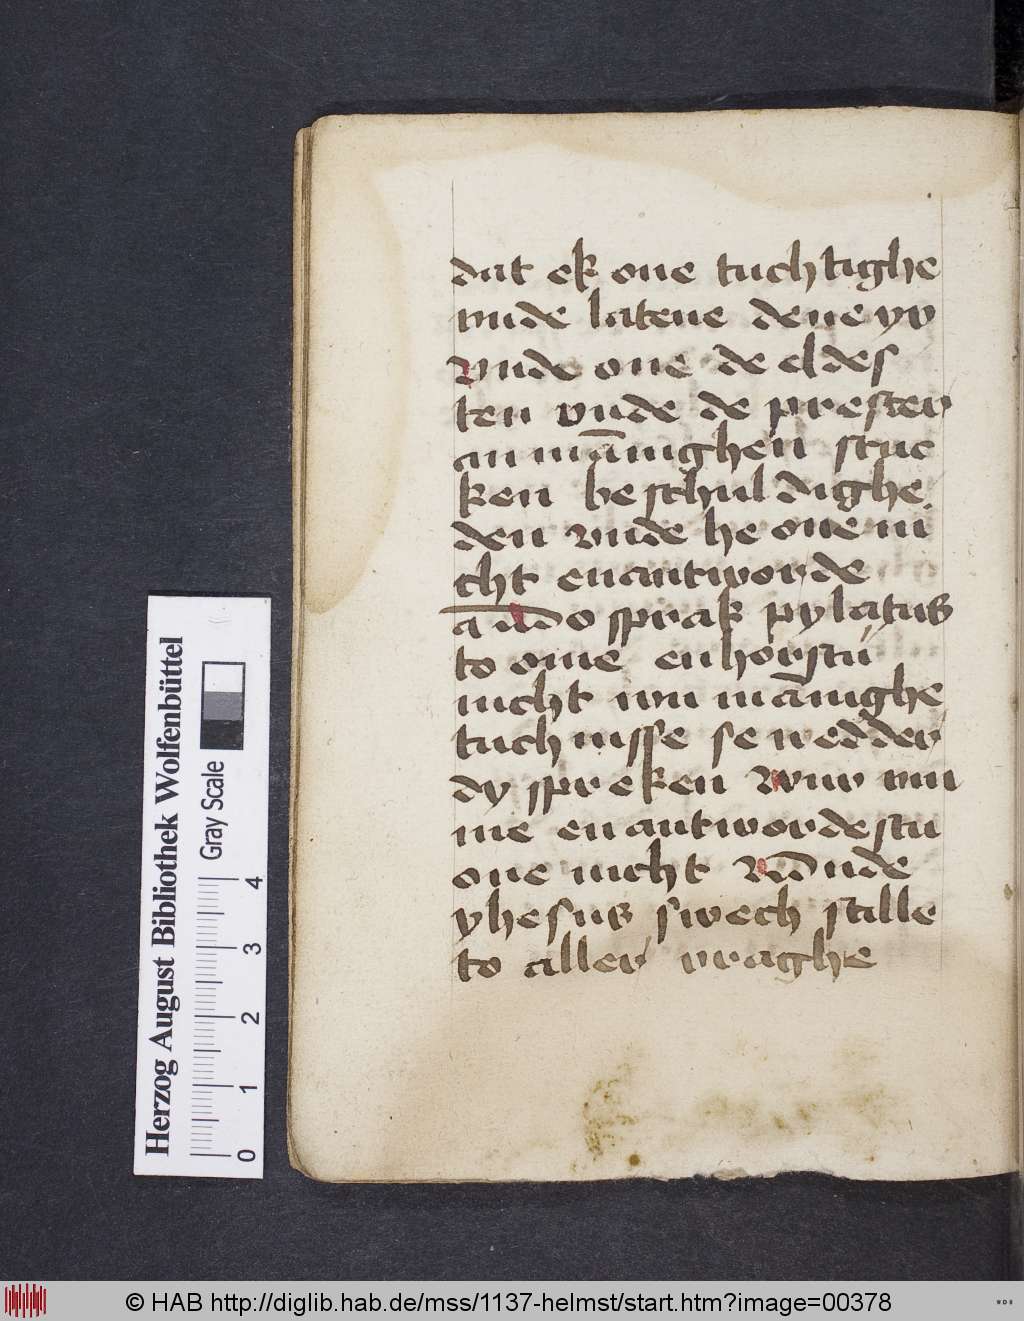 dat ek one tuchtighe
vnde latene deneyv
Vnde one de eldes
ten vnde de prester
an mānighen stuc
ken beschuldighe
den vnde he one ni
cht enantworde
do sprak pylatus
to ome enhorstu
nicht wu mānighe
tuchnisse se wedder
dy spreken Wuv vm
me enantwordestu
one nicht Vn̄ vnde
yhesus swech stille
to aller vraghe
Herzog August Bibliothek Wolfenbüttel
Gray Scale
0 1 2 3 4
© HAB http://diglib.hab.de/mss/1137-helmst/start.htm?image=00378